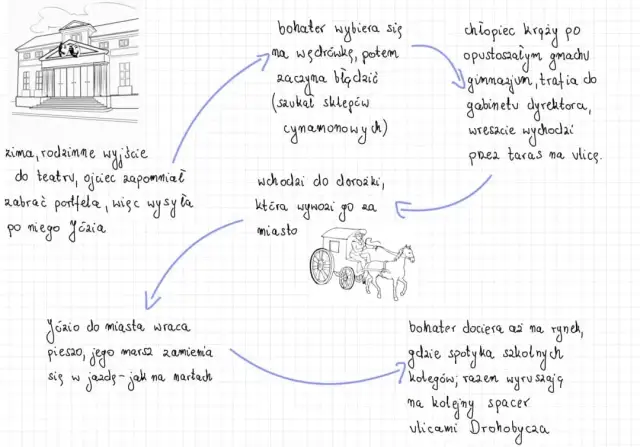 zima, rodzinne wyjście
do teatru, ojciec zapomniał
zabrać portfela, więc wysyła
po niego Józia
bohater wybiera się
na wędrówkę, potem
zaczyna błądzić
(szukał sklepów
cynamonowych)
chłopiec krąży po
opustoszałym gmachu
gimnazjum, trafia do
gabinetu dyrektora,
wreszcie wychodzi
przez taras na ulicę.
wchodzi do dorożki,
która wywozi go za
miasto
Józio do miasta wraca
pieszo, jego marsz zamienia
się w jazdę - jak na nartach
bohater dociera aż na rynek,
gdzie spotyka szkolnych
kolegów; razem wyruszają
na kolejny spacer
ulicami Drohobycza